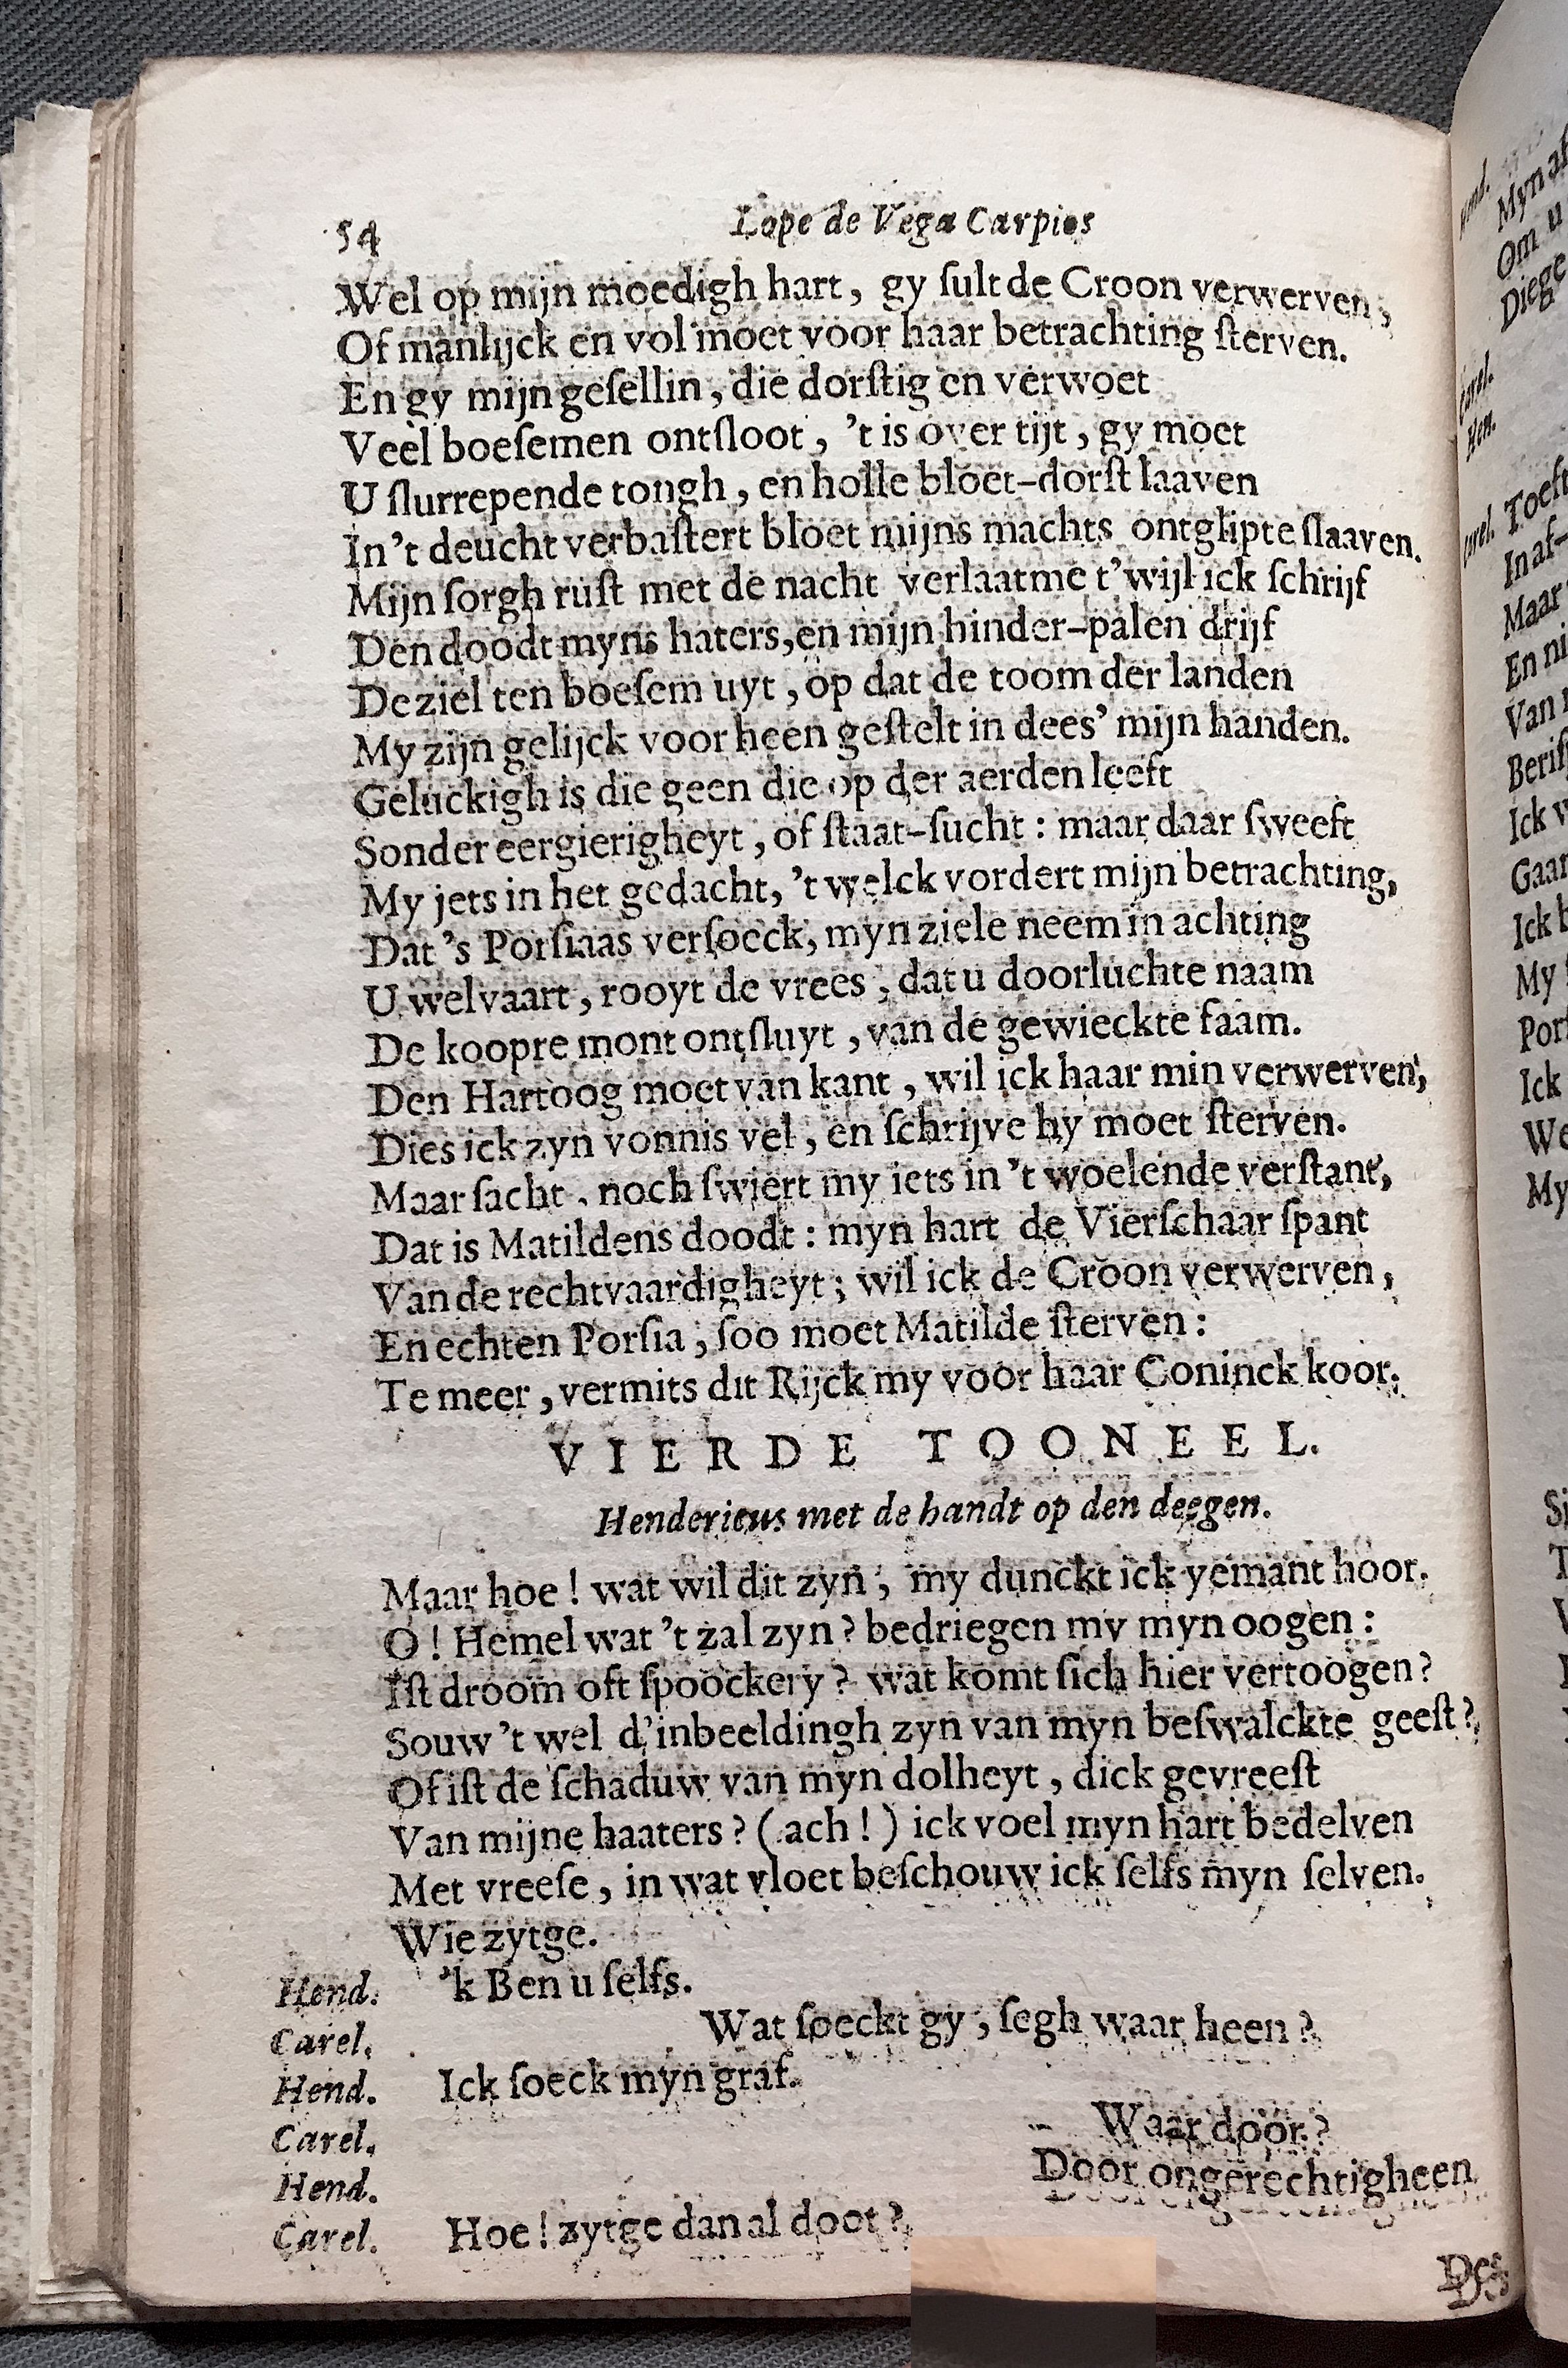 54 Lope de Vega Carpios
Wel op mijn moedigh hart, gy ſult de Croon verwerven,
Of manlijck en vol moet voor haar betrachting ſterven.
En gy mijn geſellin, die dorſtig en verwoet
Veel boeſemen ontſloot, 't is over tijt, gy moet
U ſlurrepende tongh, en holle bloet-dorſt laaven
In 't deucht verbaſtert bloet mijns machts ontglipte ſlaaven.
Mijn ſorgh ruſt met de nacht verlaatme t'wijl ick ſchrijf
Den doodt myns haters, en mijn hinder-palen drijf
De ziel ten boeſem uyt, op dat de toom der landen
My zijn gelijck voor heen geſtelt in dees' mijn handen.
Geluckigh is die geen die op der aerden leeft
Sonder eergierigheyt, of ſtaat-ſucht: maar daar ſweeft
My jets in het gedacht, 't welck vordert mijn betrachting,
Dat 's Porſiaas verſoeck, myn ziele neem in achting
U welvaart, rooyt de vrees, dat u doorluchte naam
De koopre mont ontſluyt, van de gewieckte faam.
Den Hartoog moet van kant, wil ick haar min verwerven,
Dies ick zyn vonnis vel, en ſchrijve hy moet ſterven.
Maar ſacht, noch ſwiert my iets in 't woelende verſtant,
Dat is Matildens doodt: myn hart de Vierſchaar ſpant
Van de rechtvaardigheyt; wil ick de Croon verwerven,
En echten Porſia, ſoo moet Matilde ſterven:
Te meer, vermits dit Rijck my voor haar Coninck koor.
VIERDE TOONEEL.
Hendericus met de handt op den deegen.
Maar hoe! wat wil dit zyn, my dunckt ick yemant hoor.
O! Hemel wat 't zal zyn? bedriegen my myn oogen:
Iſt droom oft ſpoockery? wat komt ſich hier vertoogen?
Souw 't wel d'inbeeldingh zyn van myn beſwalckte geeſt?
Of iſt de ſchaduw van myn dolheyt, dick gevreeſt
Van mijne haaters? (ach!) ick voel myn hart bedelven
Met vreeſe, in wat vloet beſchouw ick ſelfs myn ſelven.
Wie zytge.
Hend. 'k Ben u ſelfs.
Carel. Wat ſoeckt gy, ſegh waar heen?
Hend. Ick ſoeck myn graf.
Carel. Waar door?
Hend. Door ongerechtigheen
Carel. Hoe! zytge dan al doot?
Hend.
Myn
Om u
Diege
Carel.
Hen.
Carel. Toeft
In af-
Maar
En ni
Van
Ick
Gaar
Ick
My
Ick
We
My